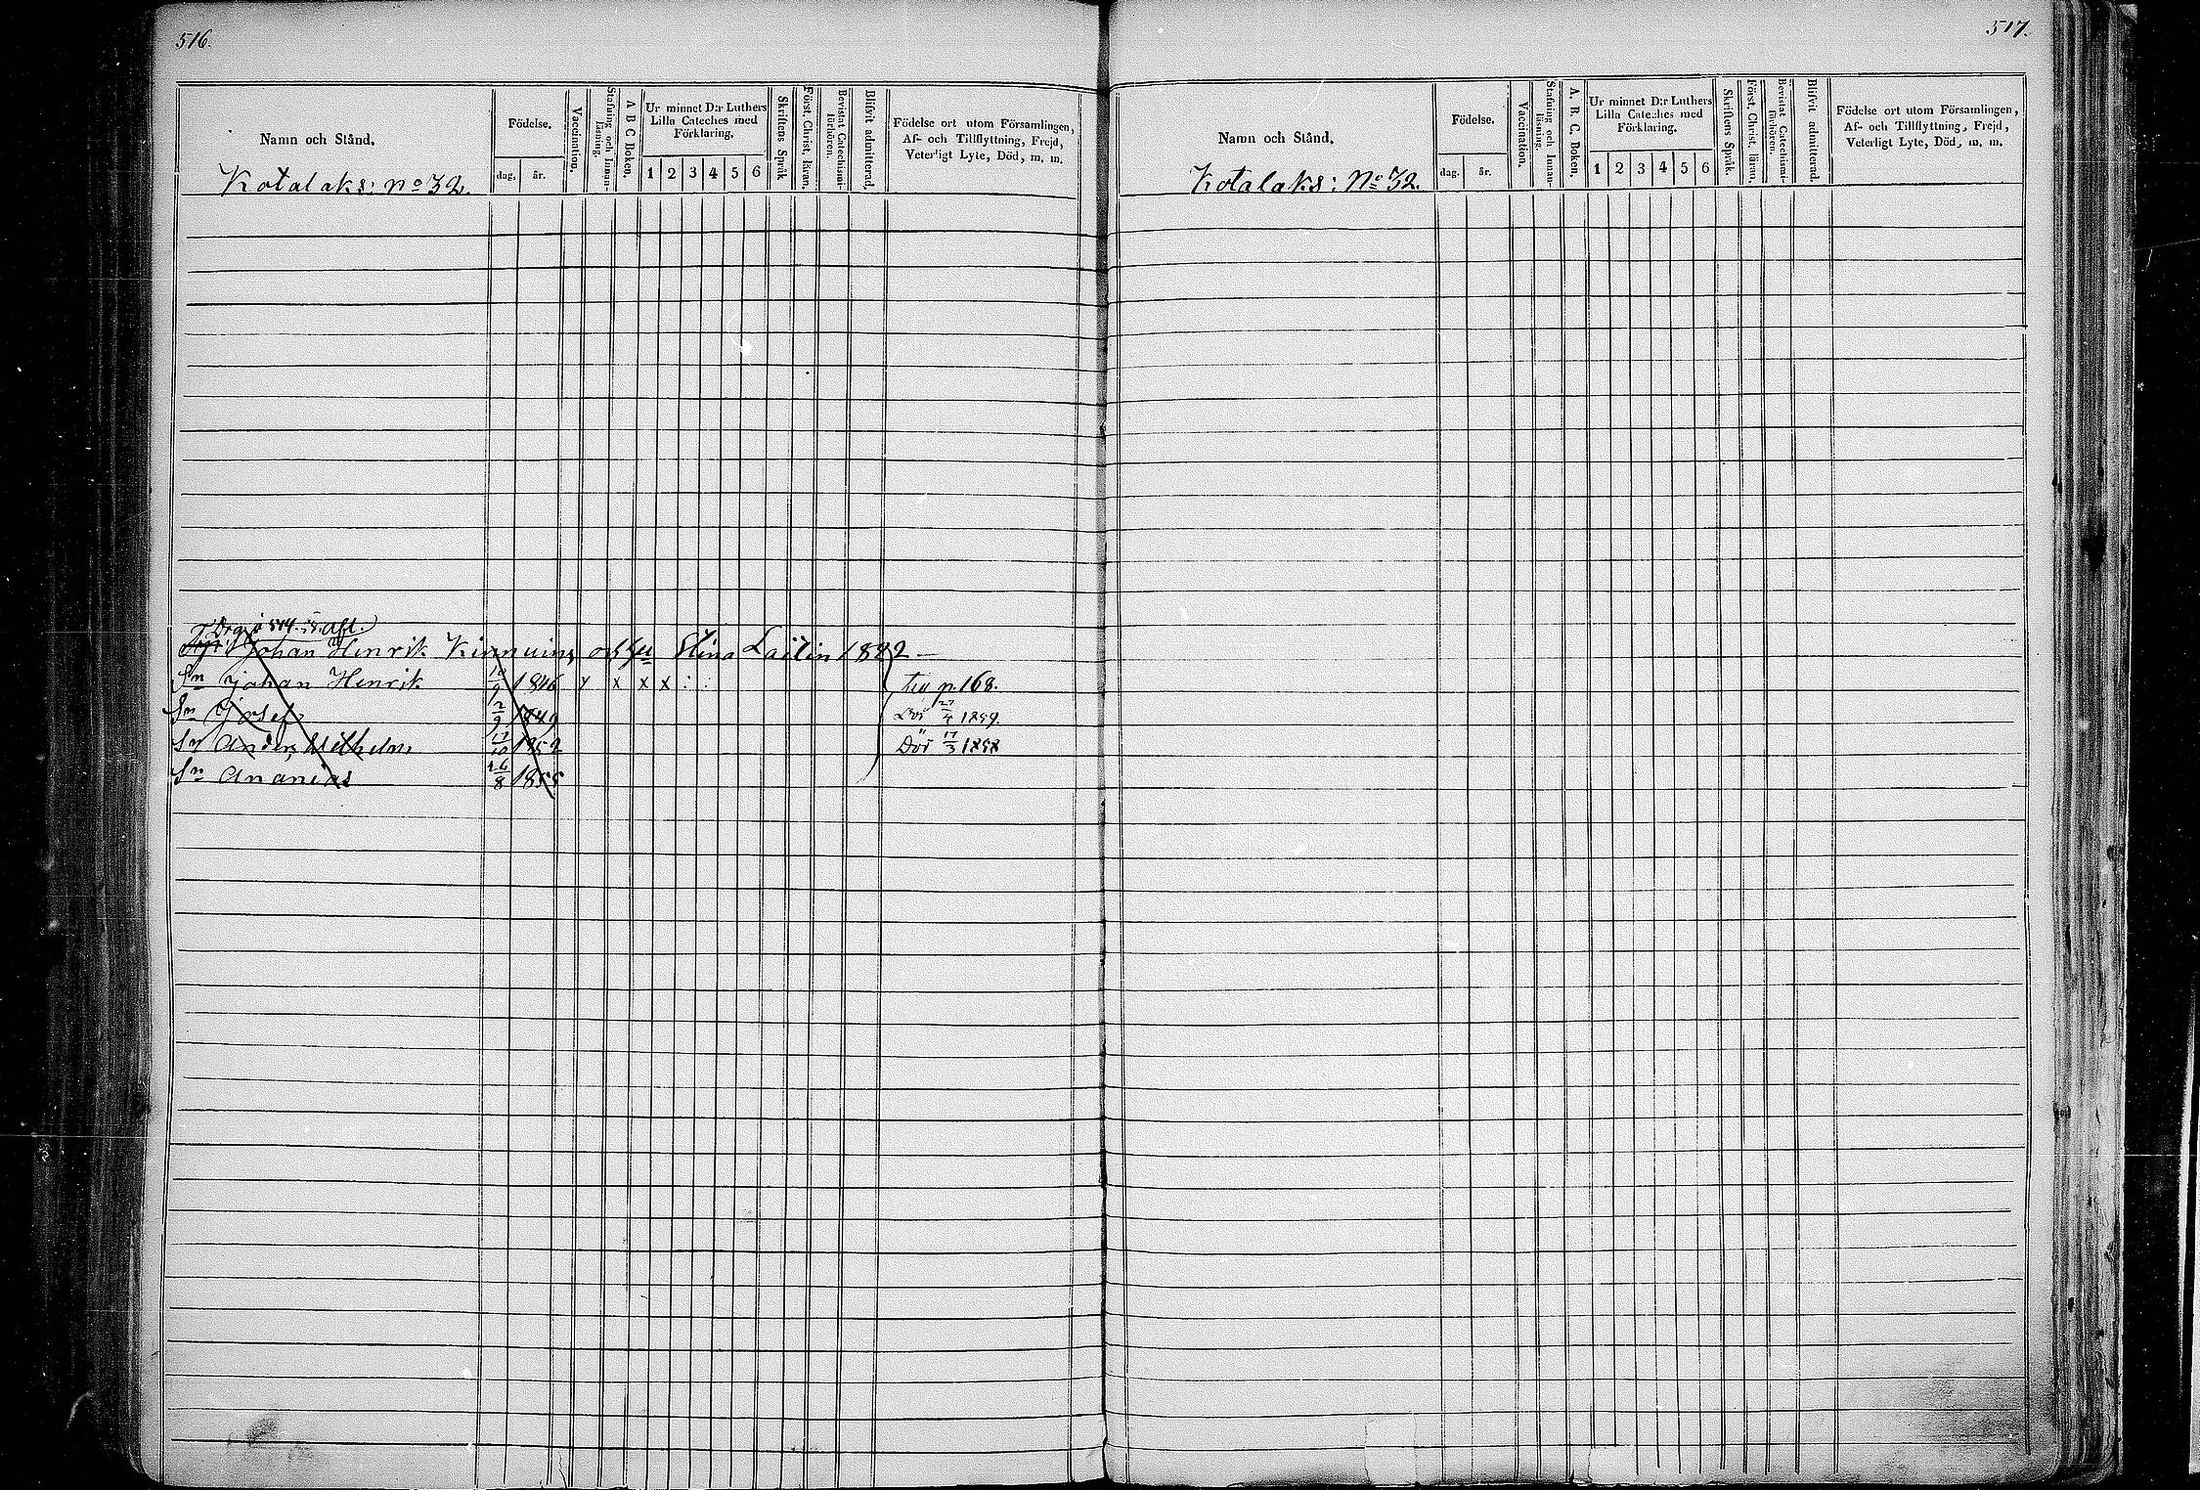 516.
Namn och Stånd.
Födelse.
dag. år.
Vaccination.
Stafning och Innanläsning.
A B C Boken.
Ur minnet D:r Luthers
Lilla Cateches med
Förklaring.
1 2 3 4 5 6
Skriftens Språk
Först. Christ. läran.
Bevistat Catechismiförhören.
Blifvit admitterad.
Födelse ort utom Församlingen,
Af- och Tillflyttning, Frejd,
Veterligt Lyte, Död, m. m.
Kotalaks: No 32.
Johan Henrik Kinnuin o. Hu Stina Laitin 1822
Sn Johan Henrik 1846 x x x x : : p. 168.
Sn Josef 2/9 1849 Död 27/4 1859.
Sn Anders Wilhelm 17/10 1852 Död 17/3 1858
Sn Ananias 26/8 1855
517.
Namn och Stånd.
Födelse.
dag. år.
Vaccination.
Stafning och Innanläsning.
A. B. C. Boken.
Ur minnet D:r Luthers
Lilla Cateches med
Förklaring.
1 2 3 4 5 6
Skriftens Språk.
Först. Christ. läran.
Bevistat Catechismiförhören.
Blifvit admitterad.
Födelse ort utom Församlingen,
Af- och Tillflyttning, Frejd,
Veterligt Lyte, Död, m. m.
Kotalaks: No 32.